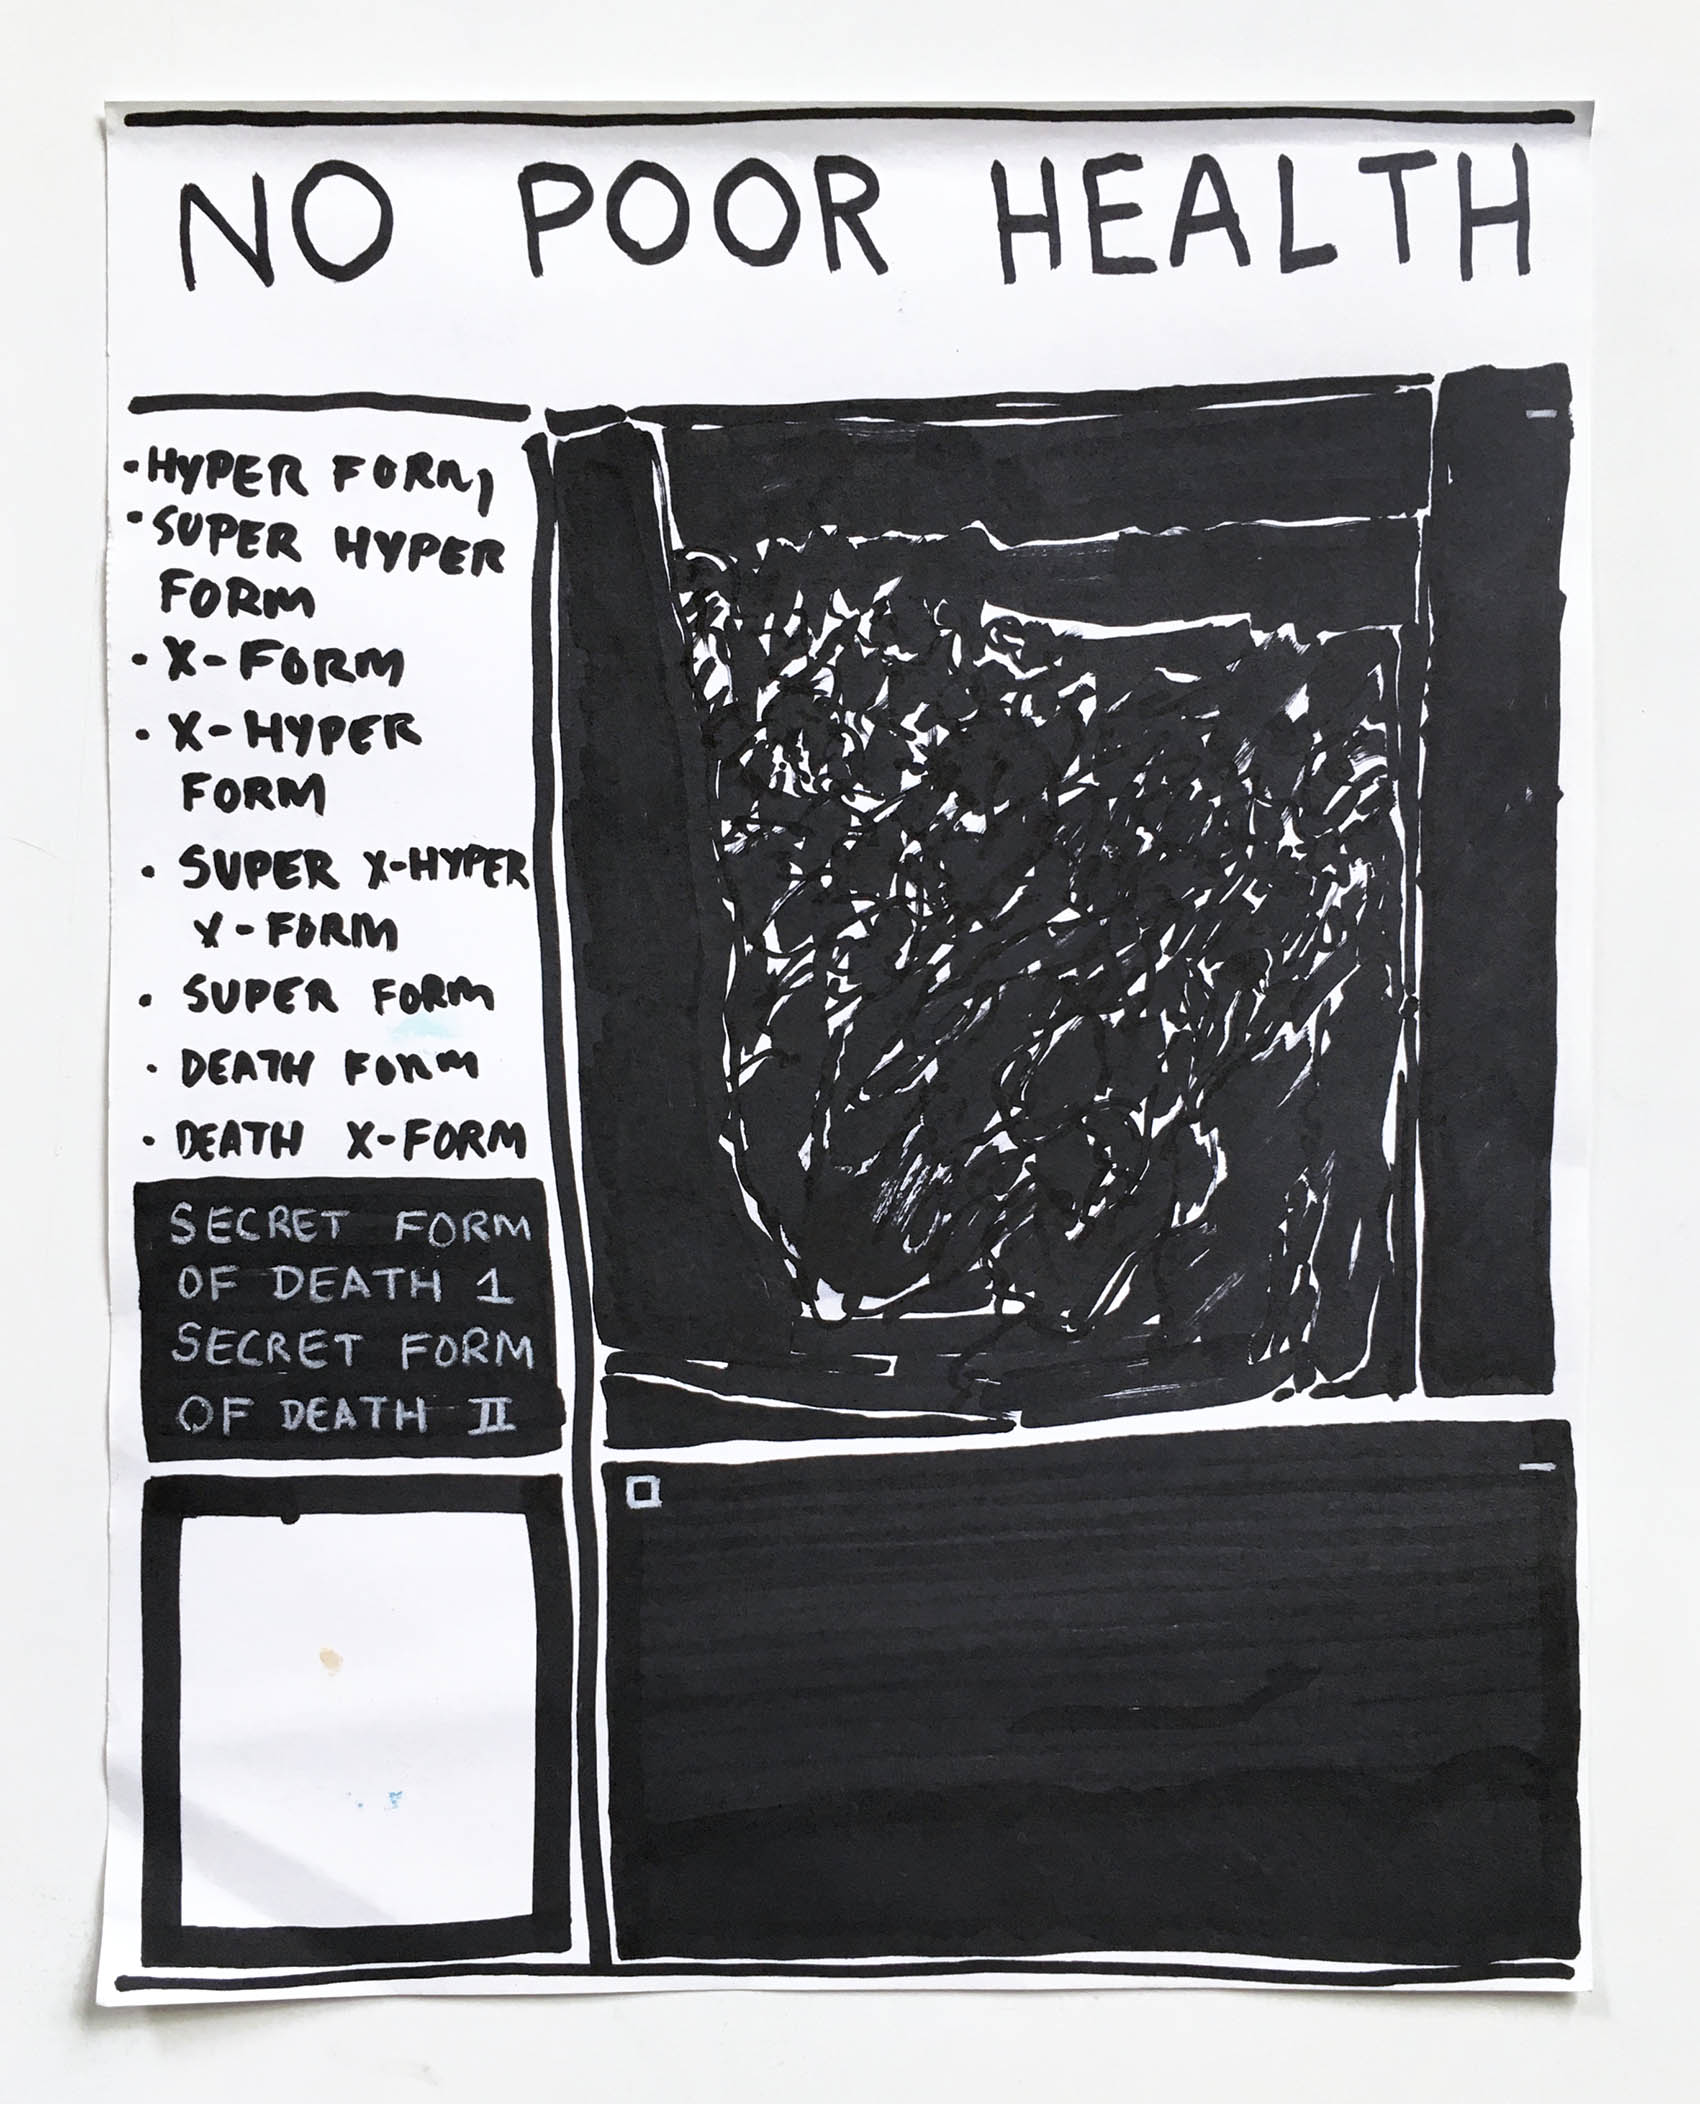 NO POOR HEALTH
• HYPER FORM
• SUPER HYPER
FORM
• X-FORM
• X-HYPER
FORM
• SUPER X-HYPER
X-FORM
• SUPER FORM
• DEATH FORM
• DEATH X-FORM
SECRET FORM
OF DEATH 1
SECRET FORM
OF DEATH II